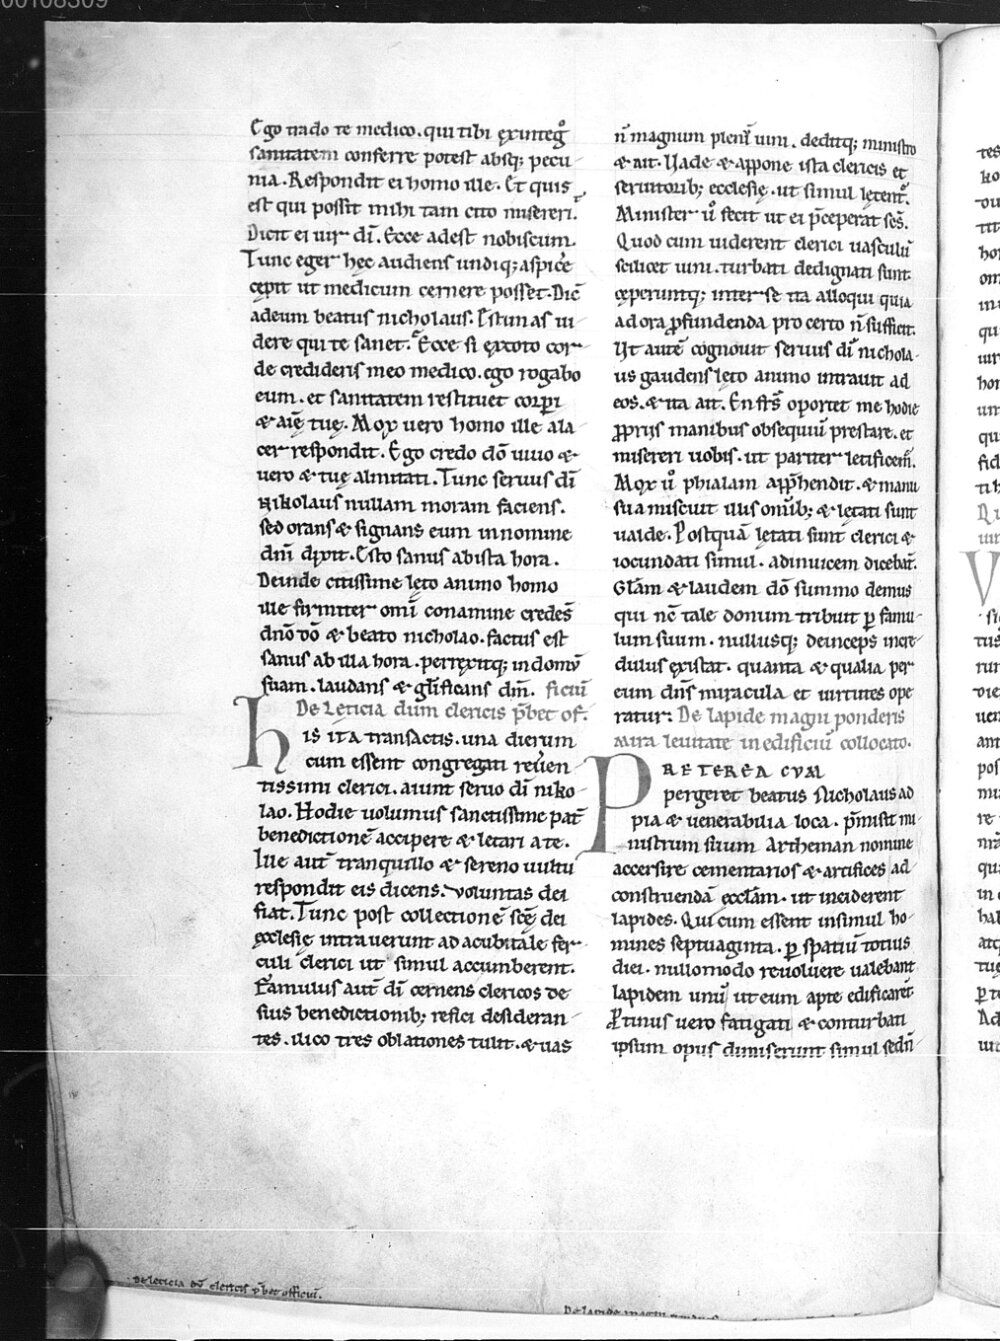 00108309
Ego trado te medico. qui tibi ex integͦ
sanitatem conferre potest absq; pecu
nia. Respondit ei homo ille. Et quis
est qui possit mihi tam cito misereri.
Dicit ei uir dī. Ecce adest nobiscum.
Tunc eger hęc audiens undiq; aspicͤe
cępit ut medicum cernere posset. Dic̄
ad eum beatus nicholaus. Estimas ui
dere qui te sanet. Ecce si ex toto cor
de credideris meo medico. ego rogabo
eum. et sanitatem restituet corpi
& aīę tuę. Mox uero homo ille ala
cer respondit. Ego credo dō uiuo &
uero & tuę almitati. Tunc seruus dī
Nikolaus nullam moram faciens.
sed orans & signans eum in nomine
dnī dixit. Esto sanus ab ista hora.
Deinde citissime lęto animo homo
ille firmiter omī conamine credēs
dnō dō & beato nicholao. factus est
sanus ab illa hora. perrexitq; in domū
suam. laudans & gl̄ificans dm̄. ficiū
De leticia dum clericis p̄bet of.
his ita transactis. una dierum
cum essent congregati reuen
tissimi clerici. aiunt seruo dī niko
lao. Hodie uolumus sanctissime pat̄
benedictionē accipere & letari a te.
Ille aut̄ tranquillo & sereno uultu
respondit eis dicens. Voluntas dei
fiat. Tunc post collectionē scę̄ dei
ęcclesię intrauerunt ad acubitale fer
culi clerici ut simul accumberent.
Famulus aut̄ dī cernens clericos de
suis benedictionib; refici desideran
tes. ilico tres oblationes tulit. & uas
n̄ magnum plenū uini. deditq; ministro
& ait. Vade & appone ista clericis et
seruitorib; ecclesię. ut simul lętent᷑.
Minister ū fecit ut ei p̄ceperat scs̄.
Quod cum uiderent clerici uasculū
scilicet uini. turbati dedignati sunt
cęperuntq; inter se ita alloqui quia
ad ora ꝓfundenda pro certo n̄ sufficit.
Vt autē cognouit seruus dī nichola
us gaudens lęto animo intrauit ad
eos. & ita ait. En fr̄s oportet me hodie
ꝓprijs manibus obsequiū prestare. et
misereri uobis. ut pariter letificem᷑.
Mox ū phialam app̄hendit. & manu
sua miscuit illis omīb; & lętati sunt
ualde. Postquā lętati sunt clerici &
iocundati simul. adinuicem dicebat̄.
Glām & laudem dō summo demus
qui nc̄ tale donum tribuit ꝑ famu
lum suum. nullusq; deinceps incre
dulus existat. quanta & qualia per
eum dn̄s miracula et uirtutes ope
ratur. De lapide magni ponderis
mira leuitate in edificiū collocato.
PRETEREA CVM
pergeret beatus Nicholaus ad
pia & uenerabilia loca. p̄misit mi
nistrum suum Artheman nomine
accersire cementarios & artifices ad
construendā ęcclām. ut inciderent
lapides. Qui cum essent insimul ho
mines septuaginta. ꝑ spatiū totius
diei. nullomodo reuoluere ualebant
lapidem unū ut eum apte edificaret
Ꝓtinus uero fatigati & conturbati
ipsum opus dimiserunt simul sed n̄
De leticia dū clericis p̄bet officiū.